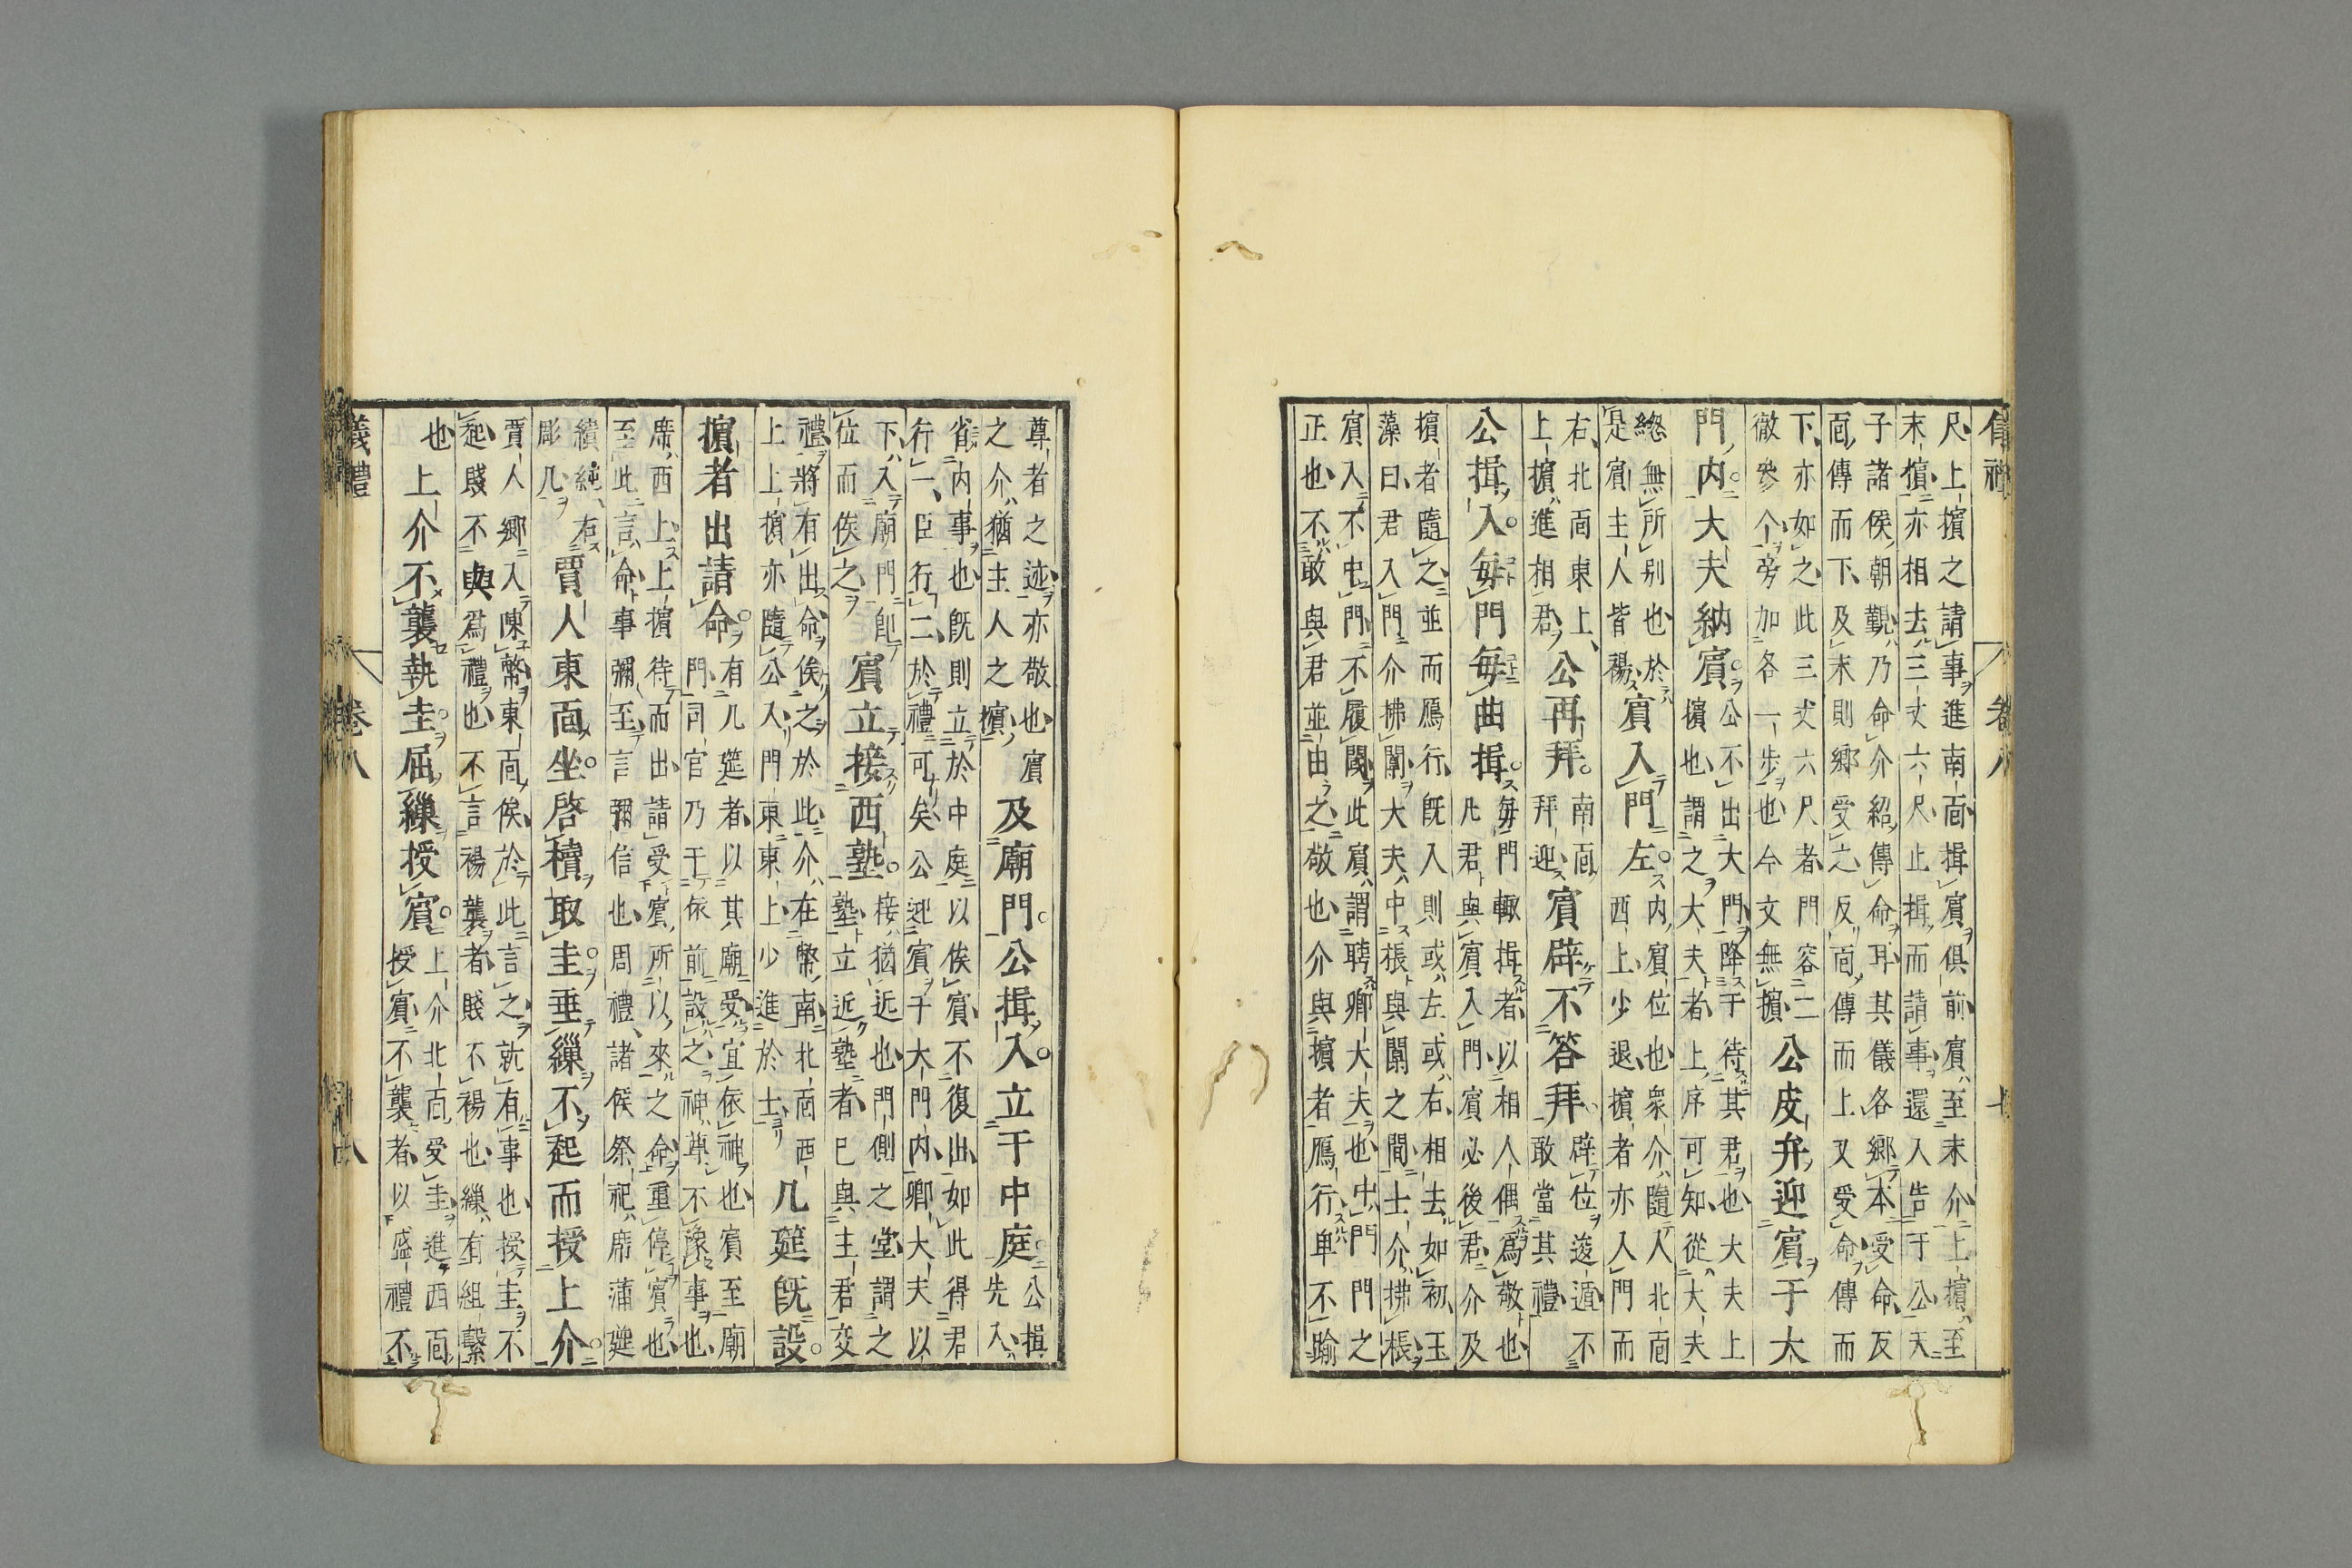 卷八
尺上擯之請事進南面揖賓俱前賓至末介上擯至
末擯亦相去三丈六尺止揖而請事還入告于公天
子諸侯朝覲乃命介紹傳命耳其儀各鄉本受命反
面傳而下及末則鄉受之反面傳而上又受命傳而
下亦如之此三丈六尺者門容二
徹參个旁加各一步也今文無擯
公皮弁迎賓于大
門内大夫納賓
公不出大門降于待其君也大夫上
擯也謂之大夫者上序可知從大夫
總無所别也於
是賓主人皆裼
賓入門左
内賓位也衆介隨入北面
西上少退擯者亦入門而
右北面東上
上擯進相君
公再拜
南面
拜迎
賓辟不答拜
辟位逡遁不
敢當其禮
公揖入每門每曲揖
每門輒揖者以相人偶爲敬也
凡君與賓入門賓必後君介及
擯者隨之並而鴈行既入則或左或右相去如初玉
藻曰君入門介拂闑大夫中棖與闑之間士介拂棖
賓入不中門不履閾此賓謂聘卿大夫也中門門之
正也不敢與君並由之敬也介與擯者鴈行卑不踰
尊者之迹亦敬也賓
之介猶主人之擯
及廟門公揖入立于中庭
公揖
先入
省内事也既則立於中庭以俟賓不復出如此得君
行一臣行二於禮可矣公迎賓于大門内卿大夫以
下入廟門即
位而俟之
賓立接西塾
接猶近也門側之堂謂之
塾立近塾者已與主君交
禮將有出命俟之於此介在幣南北面西
上上擯亦隨公入門東東上少進於士
几筵既設
擯者出請命
有几筵者以其廟受宜依神也賓至廟
門司官乃于依前設之神尊不豫事也
席西上上擯待而出請受賓所以來之命重停賓也
至此言命事彌至言彌信也周禮諸侯祭祀席蒲筵
繢純右
彫几
賈人東面坐啓櫝取圭垂繅不起而授上介
賈人鄉入陳幣東面俟於此言之就有事也授圭不
起賤不與爲禮也不言裼襲者賤不裼也繅有組繫
也
上介不襲執圭屈繅授賓
上介北面受圭進西面
授賓不襲者以盛禮不
儀禮 卷八 八